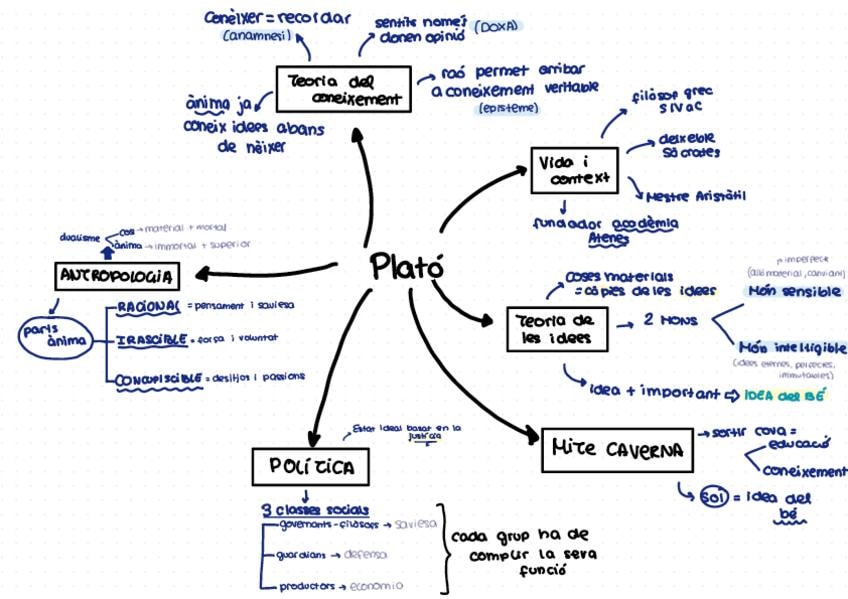 conèixer = recordar
(anamnesi)
sentits només
donen opinió (DOXA)
Teoria del
coneixement
raó permet arribar
a coneixement veritable
(episteme)
ànima ja
coneix idees abans
de nèixer
Vida i
context
filòsof grec
S IV aC
deixeble
Sòcrates
Mestre Aristòtil
fundador acadèmia
Atenes
Plató
dualisme
cos → material + mortal
ànima → immortal + superior
ANTROPOLOGIA
parts
ànima
RACIONAL = pensament i saviesa
IRASCIBLE = força i voluntat
CONCUPISCIBLE = desitjos i passions
Teoria de
les idees
coses materials
= còpies de les idees
→ 2 MONS
imperfecte
(allò material, canviant)
Món sensible
Món intel·ligible
(idees eternes, perfectes,
immutables)
idea + important ⇨ IDEA del BÉ
MITE CAVERNA
→ sortir cova =
educació
coneixement
sol = idea del
bé
POLÍTICA
Estat ideal basat en la
justícia
3 classes socials
governants-filòsofs → saviesa
guardians → defensa
productors → economia
cada grup ha de
complir la seva
funció